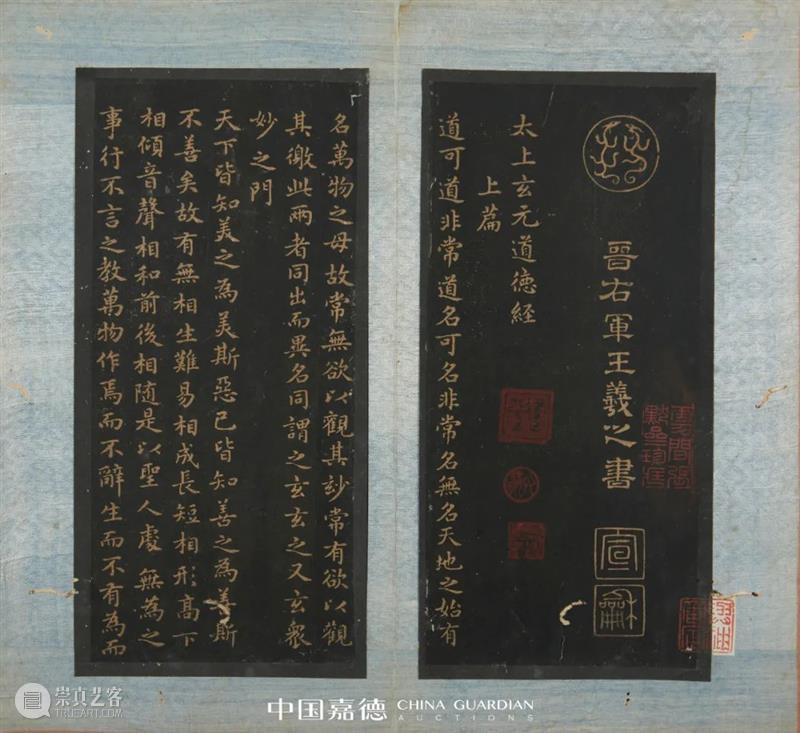 晉右軍王羲之書
宣
龢
太上玄元道德經
上篇
道可道非常道名可名非常名無名天地之始有
名萬物之母故常無欲以觀其妙常有欲以觀
其徼此兩者同出而異名同謂之玄玄之又玄眾
妙之門
天下皆知美之為美斯惡已皆知善之為善斯
不善矣故有無相生難易相成長短相形高下
相傾音聲相和前後相隨是以聖人處無為之
事行不言之教萬物作焉而不辭生而不有為而
崇真艺客
TRUEART.COM
中国嘉德 CHINA GUARDIAN
AUCTIONS